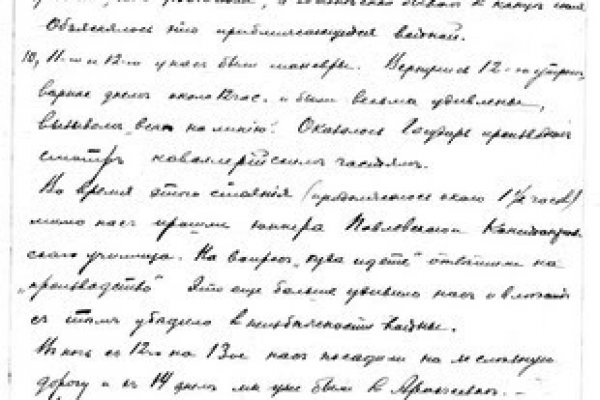 Объяснялось это приближающейся войной.
10, 11-го и 12-го у нас были маневры. Вернулись 12-го утром,
вернее днем около 12 час. и были весьма удивлены,
вызовом „всех на линию". Оказалось Государь производит
смотръ кавалерийским частям.
Во время этого стояния (продолжалось около 1½ часов)
мимо нас прошли юнкера Павловского
ского училища. На вопрос „куда идете" ответили на
„производство" Это еще больше удивило нас и
с тем убедило в неизбежности войны.
В ночь с 12-го на 13-ое нас посадили на железную
дорогу и в 14 днем мы уже были в